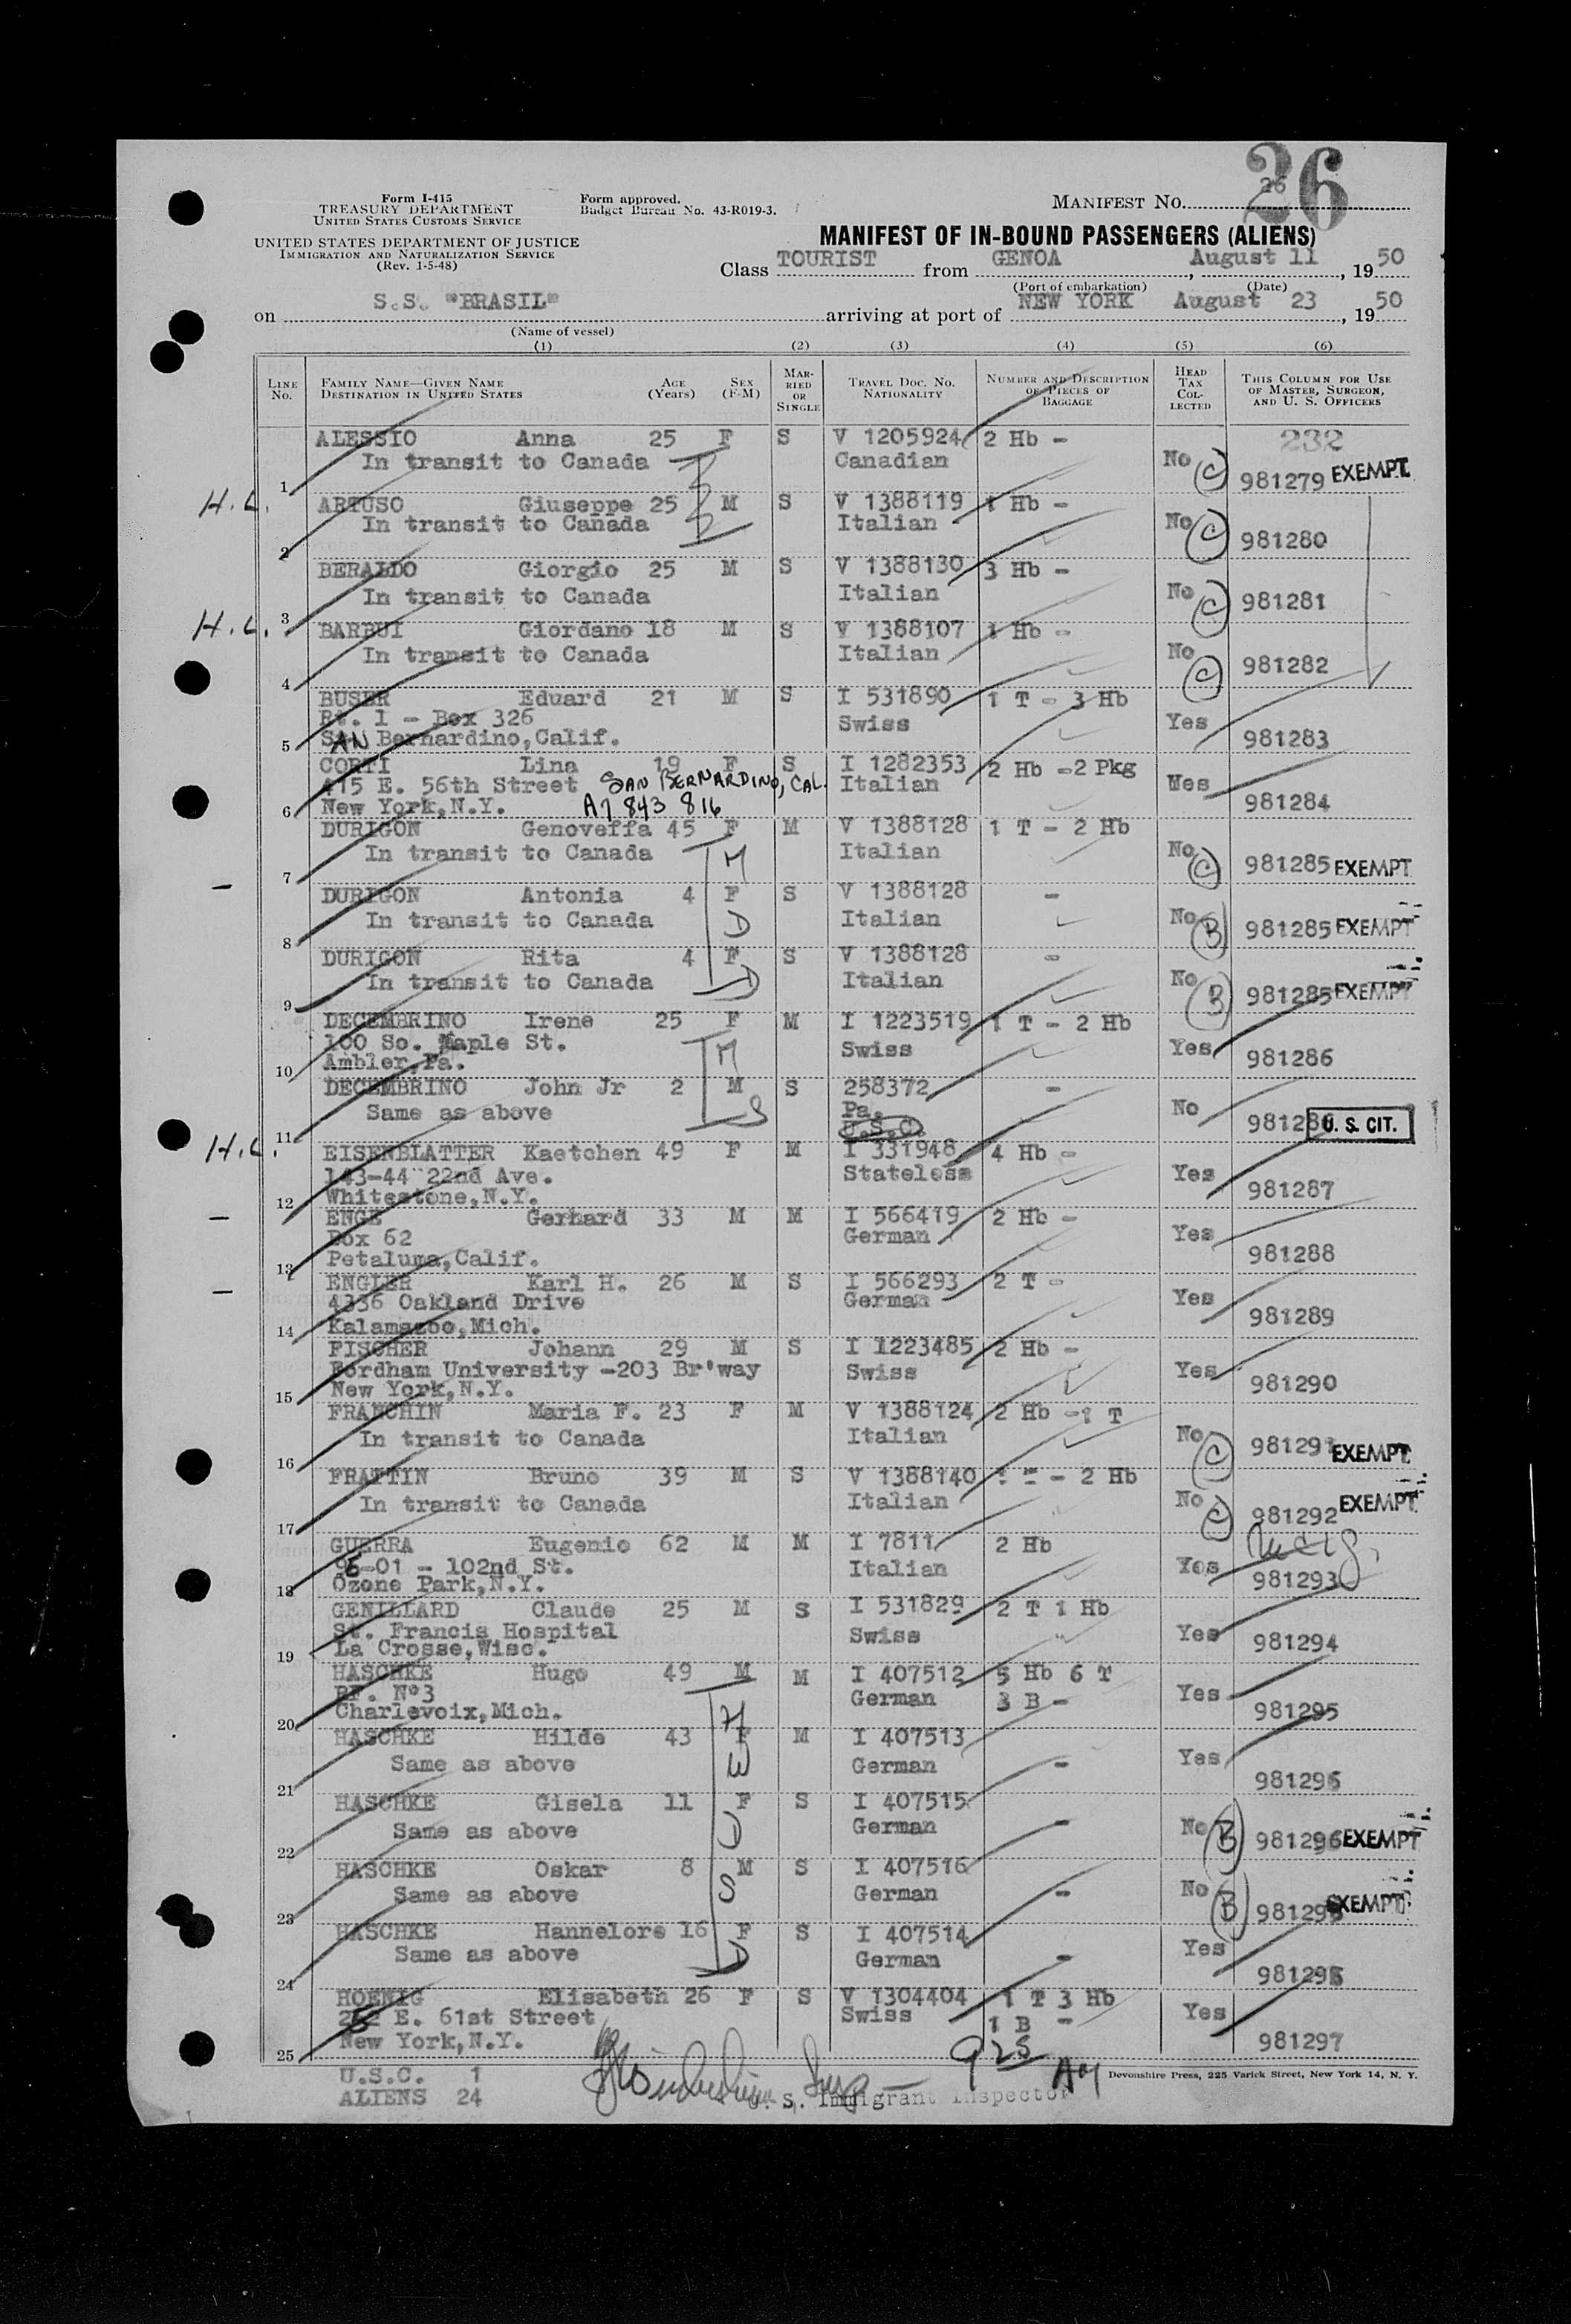 26
26
Form I-415
TREASURY DEPARTMENT
UNITED STATES CUSTOMS SERVICE
Form approved.
Budget Bureau No. 43-R019-3.
MANIFEST NO.
UNITED STATES DEPARTMENT OF JUSTICE
IMMIGRATION AND NATURALIZATION SERVICE
(Rev. 1-5-48)
MANIFEST OF IN-BOUND PASSENGERS (ALIENS)
Class TOURIST from GENOA, August 11, 1950
(Port of embarkation) (Date)
on S.S. "BRASIL" arriving at port of NEW YORK August 23, 1950
(Name of vessel)
(1) (2) (3) (4) (5) (6)
LINE NO. FAMILY NAME—GIVEN NAME DESTINATION IN UNITED STATES AGE (YEARS) SEX (F-M) MARRIED OR SINGLE TRAVEL DOC. NO. NATIONALITY NUMBER AND DESCRIPTION OF PIECES OF BAGGAGE HEAD TAX COLLECTED THIS COLUMN FOR USE OF MASTER, SURGEON, AND U. S. OFFICERS
ALESSIO Anna 25 F S V 1205924 2 Hb - 232
In transit to Canada Canadian No C
1 981279 EXEMPT
H.L. ARTUSO Giuseppe 25 M S V 1388119 1 Hb -
In transit to Canada Italian No C
2 981280
BERALDO Giorgio 25 M S V 1388130 3 Hb -
In transit to Canada Italian No C
3 981281
H.L. BARBUI Giordano 18 M S V 1388107 1 Hb -
In transit to Canada Italian No C
4 981282
BUSER Eduard 21 M S I 531890 1 T - 3 Hb
Rt. 1 - Box 326 Swiss Yes
5 SAN Bernardino, Calif. 981283
CORTI Lina 19 F S I 1282353 2 Hb -2 Pkg
415 E. 56th Street SAN BERNARDINO, CAL. Italian Wes
6 New York, N.Y. A7 843 816 981284
DURIGON Genoveffa 45 F M V 1388128 1 T - 2 Hb
In transit to Canada M Italian No C
7 981285 EXEMPT
- DURIGON Antonia 4 F S V 1388128 -
In transit to Canada D Italian No B
8 981285 EXEMPT
DURIGON Rita 4 F S V 1388128 -
In transit to Canada D Italian No B
9 981285 EXEMPT
DECEMBRINO Irene 25 F M I 1223519 1 T - 2 Hb
100 So. Maple St. M Swiss Yes
10 Ambler, Pa. 981286
DECEMBRINO John Jr 2 M S 258372 -
Same as above S Pa. No
11 U.S.C. 981286 U. S. CIT.
H.L. EISENBLATTER Kaetchen 49 F M I 331948 4 Hb -
143-44 22nd Ave. Stateless Yes
12 Whitestone, N.Y. 981287
- ENGE Gerhard 33 M M I 566419 2 Hb -
Box 62 German Yes
13 Petaluma, Calif. 981288
- ENGLER Karl H. 26 M S I 566293 2 T -
4336 Oakland Drive German Yes
14 Kalamazoo, Mich. 981289
FISCHER Johann 29 M S I 1223485 2 Hb -
Fordham University -203 Br'way Swiss Yes
15 New York, N.Y. 981290
FRANCHIN Maria F. 23 F M V 1388124 2 Hb -1 T
In transit to Canada Italian No C
16 981291 EXEMPT
FRATTIN Bruno 39 M S V 1388140 - 2 Hb
In transit to Canada Italian No C
17 981292 EXEMPT
GUERRA Eugenio 62 M M I 7811 2 Hb
95-01 - 102nd St. Italian Yes
18 Ozone Park, N.Y. 981293
GENILLARD Claude 25 M S I 531829 2 T 1 Hb
St. Francis Hospital Swiss Yes
19 La Crosse, Wisc. 981294
HASCHKE Hugo 49 M M I 407512 5 Hb 6 T
RF. Nº3 H German 3 B - Yes
20 Charlevoix, Mich. 981295
HASCHKE Hilde 43 F M I 407513
Same as above W German - Yes
21 981296
HASCHKE Gisela 11 F S I 407515
Same as above D German - No B
22 981296 EXEMPT
HASCHKE Oskar 8 M S I 407516
Same as above S German - No B
23 EXEMPT
HASCHKE Hannelore 16 F S I 407514
Same as above D German - Yes
24
HOENIG Elisabeth 26 F S V 1304404 1 T 3 Hb
E. 61st Street Swiss 1 B - Yes
25 New York, N.Y. 981297
U.S.C. 1 925 AM
ALIENS 24 U. S. Immigrant Inspector
Devonshire Press, 225 Varick Street, New York 14, N. Y.